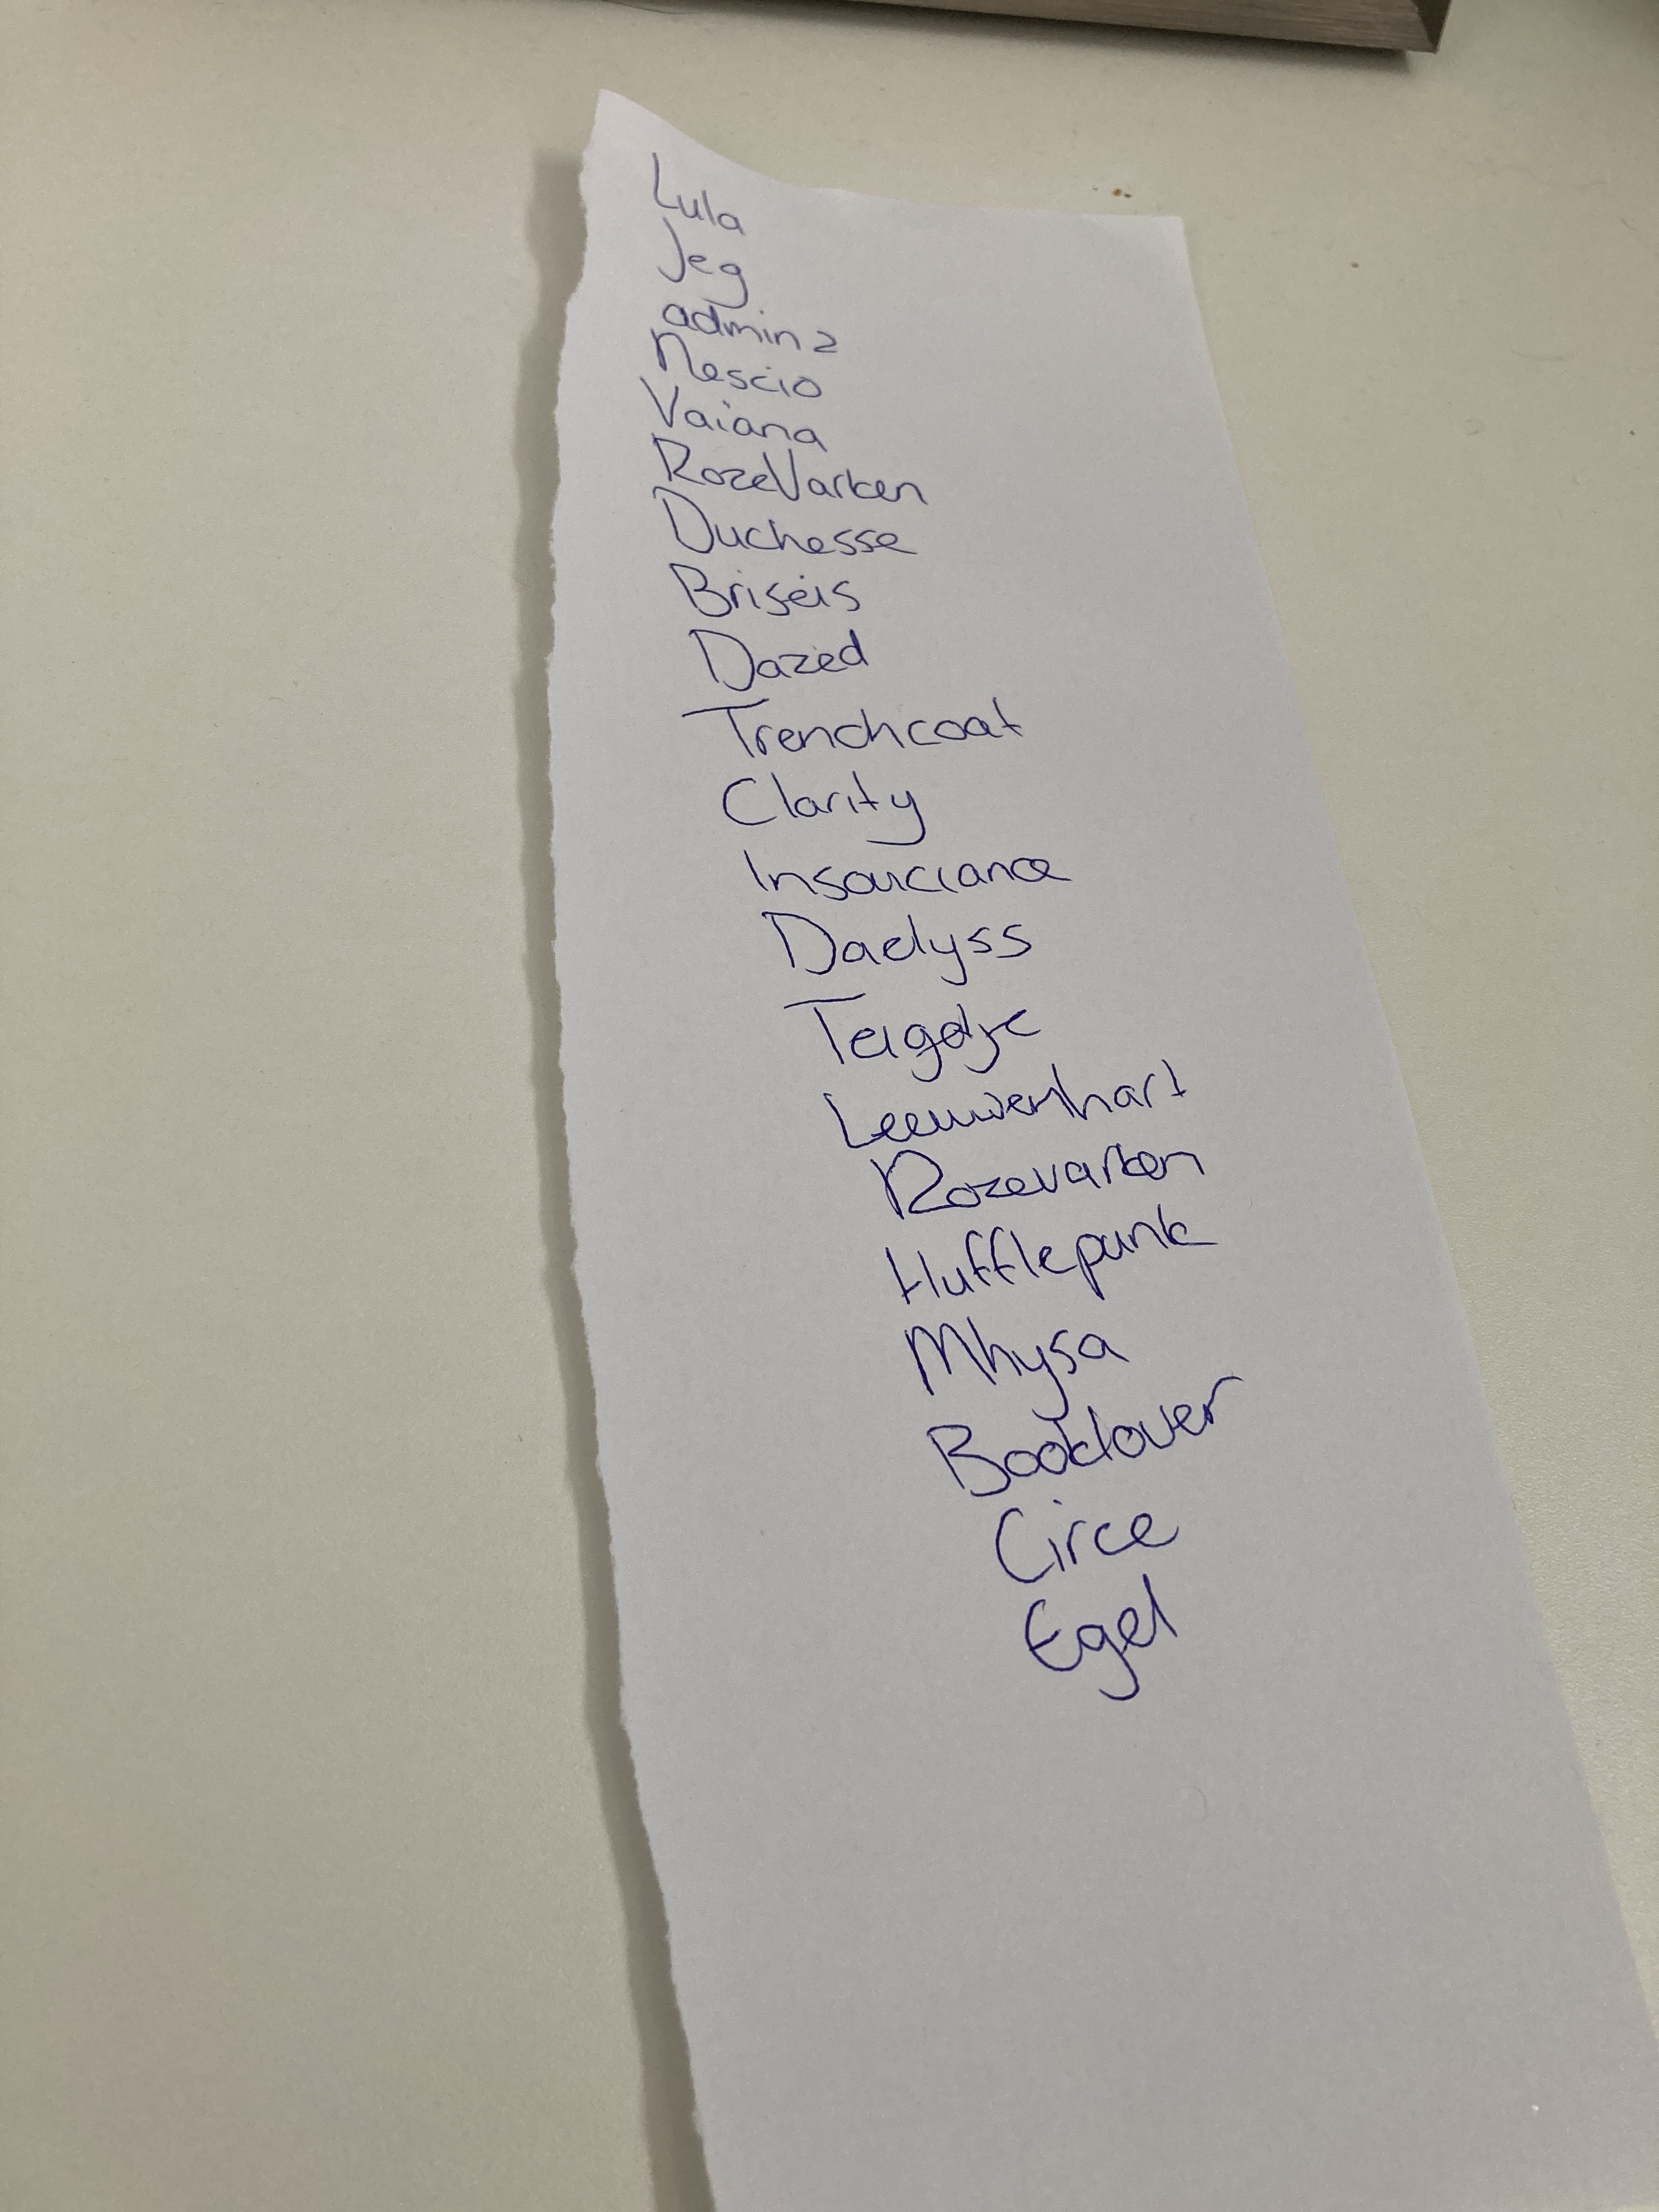 Lula
Jeg
admin2
Nescio
Vaiana
RozeVarken
Duchesse
Briseis
Dazed
Trenchcoat
Clarity
Insouciance
Daelyss
Teigetje
Leeuwenhart
Rozevarken
Hufflepunk
Mhysa
Booklover
Circe
Egel